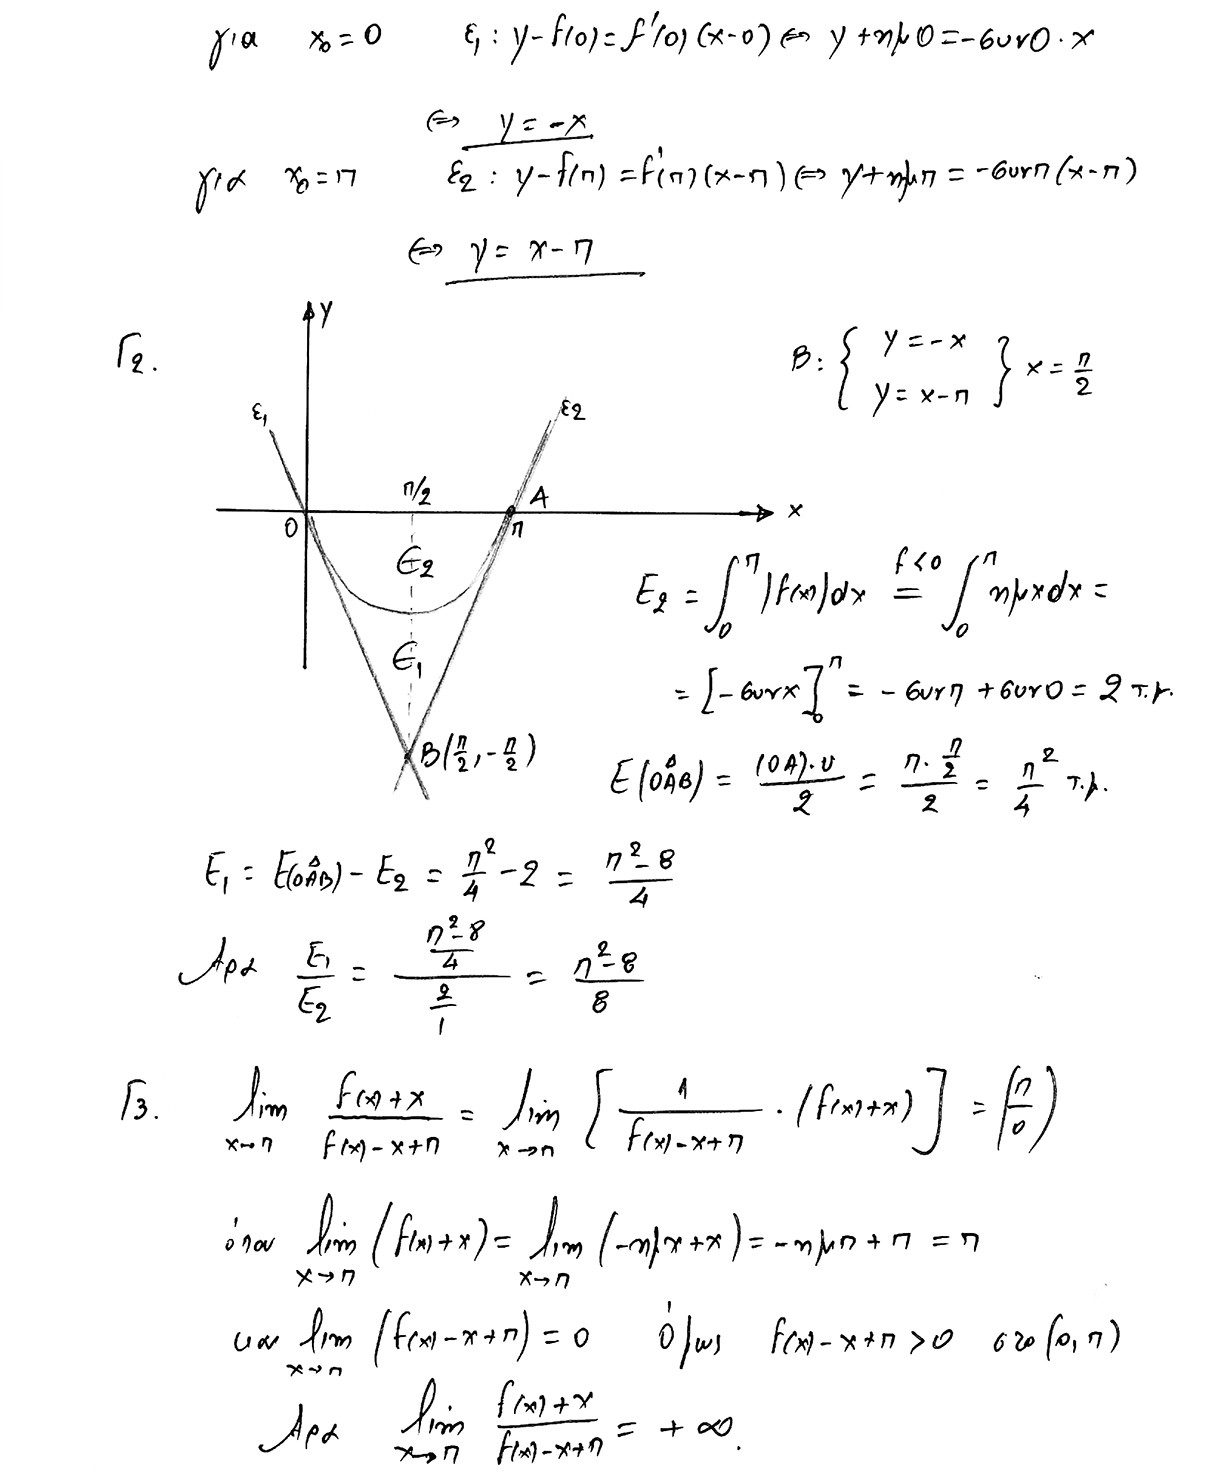 για x₀ = 0 ε₁ : y - f(0) = f'(0) (x-0) ⇔ y + ημ0 = -συν0 · x
⇔ y = -x
για x₀ = π ε₂ : y - f(π) = f'(π) (x-π) ⇔ y + ημπ = -συνπ (x-π)
⇔ y = x - π
Γ2.
y
ε₁
ε₂
π/2
A
O
π
x
E₂
E₁
B(π/2, -π/2)
B: { y = -x
y = x-π } x = π/2
E₂ = ∫₀^π |f(x)|dx =^{f<0} ∫₀^π ημxdx =
= [-συνx]₀^π = -συνπ + συν0 = 2 τ.μ.
E(OÂB) = (OA)·υ / 2 = π · π/2 / 2 = π²/4 τ.μ.
E₁ = E(OÂB) - E₂ = π²/4 - 2 = (π²-8)/4
Άρα E₁/E₂ = ((π²-8)/4) / (2/1) = (π²-8)/8
Γ3. lim_{x→π} (f(x)+x)/(f(x)-x+π) = lim_{x→π} [ 1/(f(x)-x+π) · (f(x)+x) ] = (π/0)
όπου lim_{x→π} (f(x)+x) = lim_{x→π} (-ημx+x) = -ημπ + π = π
και lim_{x→π} (f(x)-x+π) = 0 Όμως f(x)-x+π > 0 στο (0,π)
Άρα lim_{x→π} (f(x)+x)/(f(x)-x+π) = +∞.